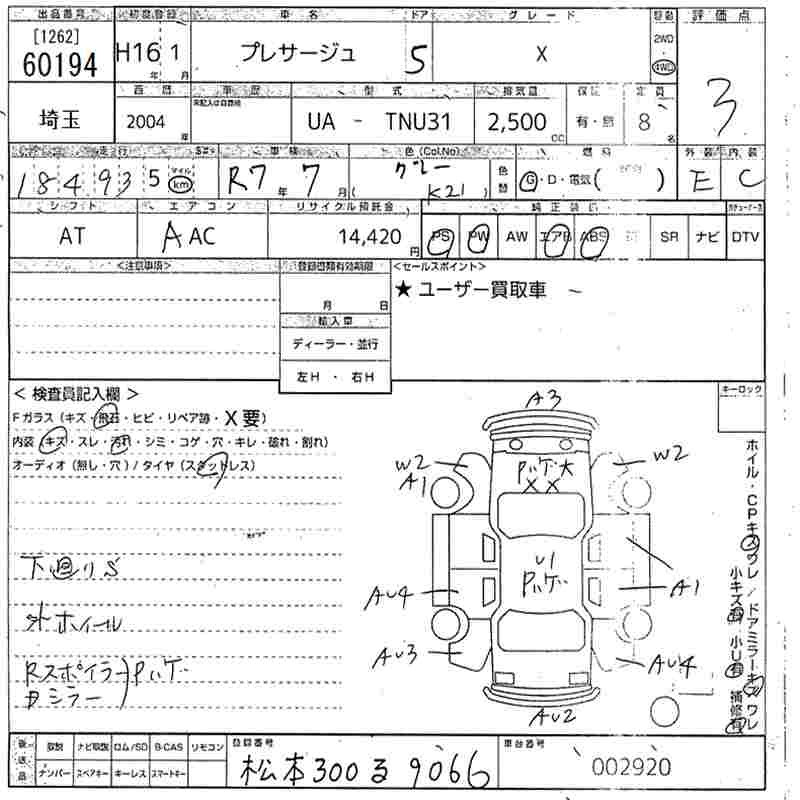 出品番号 初度登録 車名 ドア グレード 駆動 評価点
[1262]
60194 H16年 1月 プレサージュ 5 X 2WD・4WD 3
埼玉 西暦 車歴 型式 排気量 保証 定員
2004年 未記入は自家用 UA - TNU31 2,500cc 有・無 8名
走行 車検 色(Col.No) 燃料 外装 内装
184935 マイル km R7年 7月 グレー (K21) 色替 G・D・電気( ) E C
シフト エアコン リサイクル預託金 純正装備
AT AAC 14,420円 PS PW AW エアB ABS SR ナビ DTV
<注意事項> 登録書類有効期限 <セールスポイント>
月 日 ★ ユーザー買取車
輸入車
ディーラー・並行
左H・右H
< 検査員記入欄 > キーロック
Fガラス (キズ・飛石・ヒビ・リペア跡・X要)
内装 (キズ・スレ・汚れ・シミ・コゲ・穴・キレ・破れ・割れ)
オーディオ (無し・穴) / タイヤ (スタットレス)
A3
W2 Pハゲ大 W2
A1 XX
U1
Pハゲ
AU4 A1
AU3 AU4
AU2
下廻りS
外ホイール
Rスポイラー Pハゲ
Dシラー
ホイル・CPキズワレ / ドアミラーキズワレ
小キズ有 小U有 補修有
後送品 取説 ナビ取説 ロム/SD B-CAS リモコン 登録番号 車台番号
ナンバー スペアキー キーレス スマートキー 松本300る9066 002920